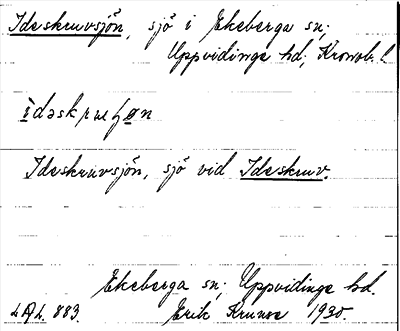 Ideskruvsjön, sjö i Ekeberga sn;
Uppvidinge hd; Kronob. l
ìdəskrʉɧøn
Ideskruvsjön, sjö vid Ideskruv.
Ekeberga sn; Uppvidinge hd.
LAL. 883. Erik 1930.